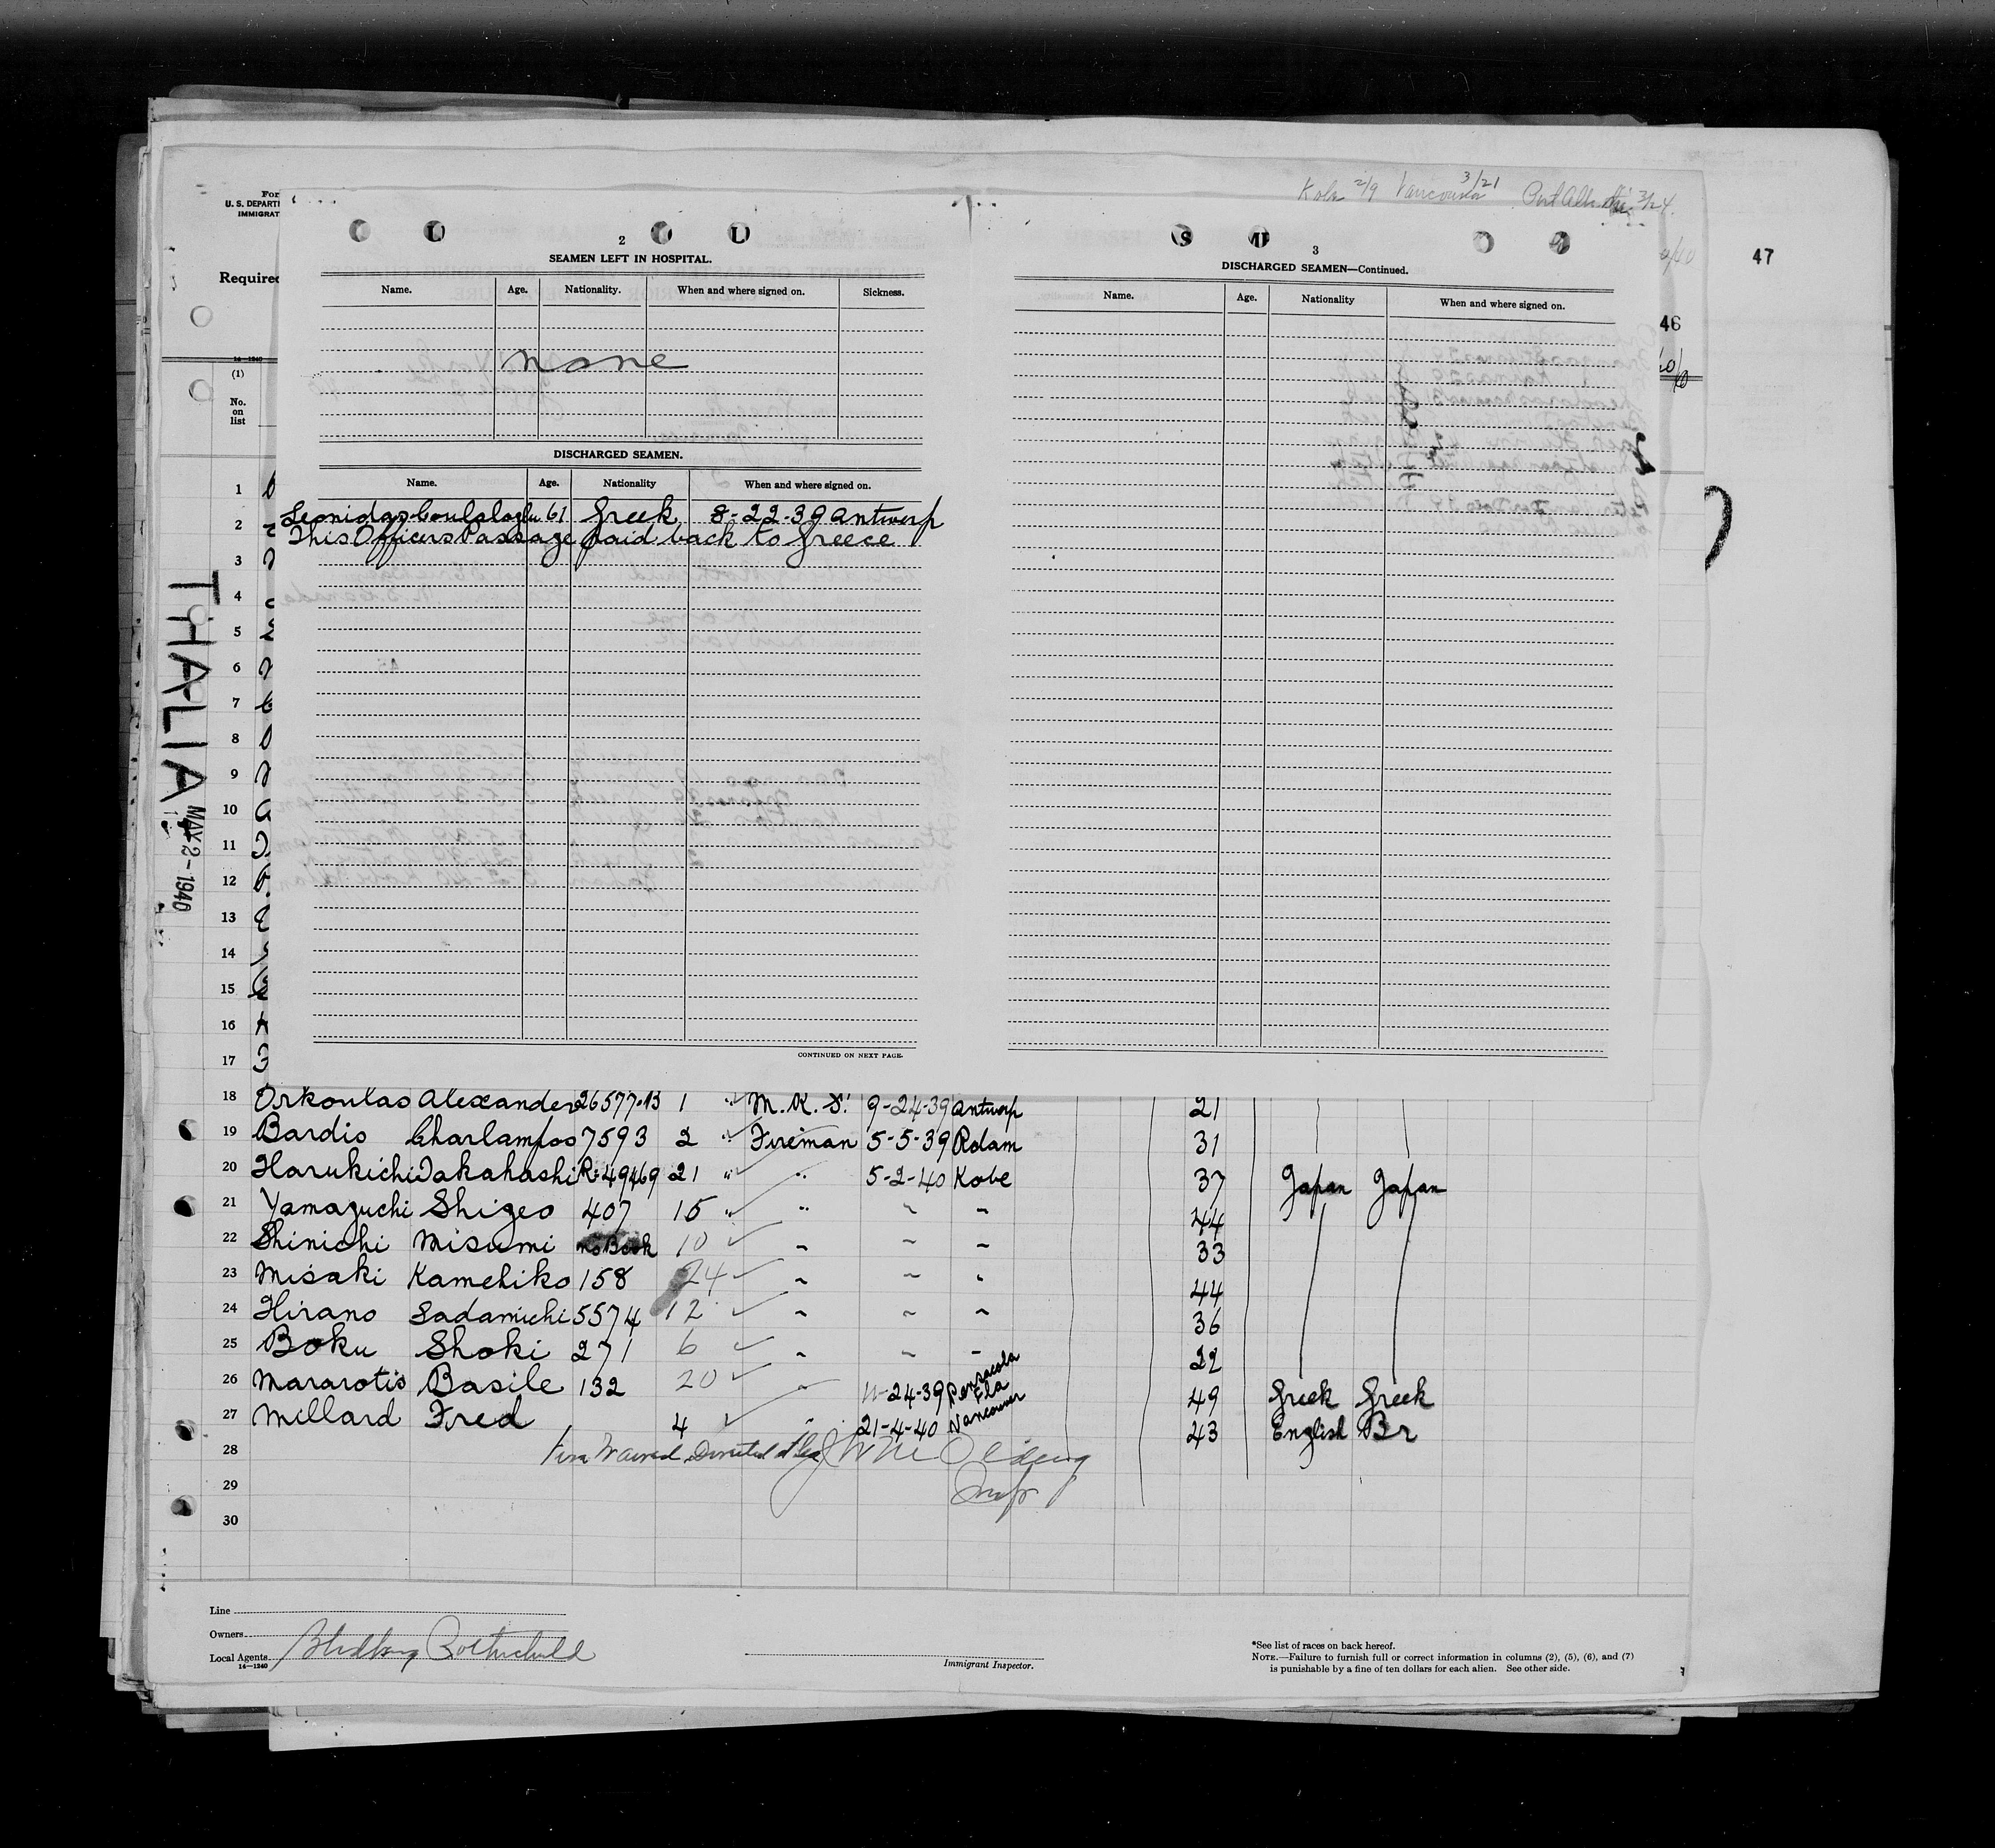 For
U. S. DEPARTI
IMMIGRAT
Required
14—1240
(1)
No.
on
list
THALIA
MAY 2-1940
Vancouver 3/21
47
46
2
SEAMEN LEFT IN HOSPITAL.
Name. Age. Nationality. When and where signed on. Sickness.
none
DISCHARGED SEAMEN.
Name. Age. Nationality When and where signed on.
Leonidas 61 Greek 8-22-39 Antwerp
This Officers Passage paid back to Greece
CONTINUED ON NEXT PAGE.
3
DISCHARGED SEAMEN—Continued.
Name. Age. Nationality When and where signed on.
1
2
3
4
5
6
7
8
9
10
11
12
13
14
15
16
17
18 Orkoulas Alexander 26577.13 1 " M.K.S. 9-24-39 Antwerp 21
19 Bardis Charlampos 7593 2 " Fireman 5-5-39 Rdam 31
20 Harukichi Takahashi R.49469 21 " " 5-2-40 Kobe 37 Japan Japan
21 Yamaguchi Shigeo 407 15 " " ~ ~ 44
22 Shinichi Misumi no Book 10 ~ ~ ~ 33
23 Misaki Kamehiko 158 24 ~ ~ " 44
24 Hirano Sadamichi 5574 12 ~ ~ ~ 36
25 Boku Shoki 271 6 ~ ~ ~ 22
26 Mararotis Basile 132 20 " 11-24-39 Pensacola Fla 49 Greek Greek
27 Millard Fred 4 " 21-4-40 Vancouver 43 English Br
28
29
30
Line
Owners
Local Agents Rothschild
14—1240
Immigrant Inspector.
*See list of races on back hereof.
NOTE.—Failure to furnish full or correct information in columns (2), (5), (6), and (7)
is punishable by a fine of ten dollars for each alien. See other side.